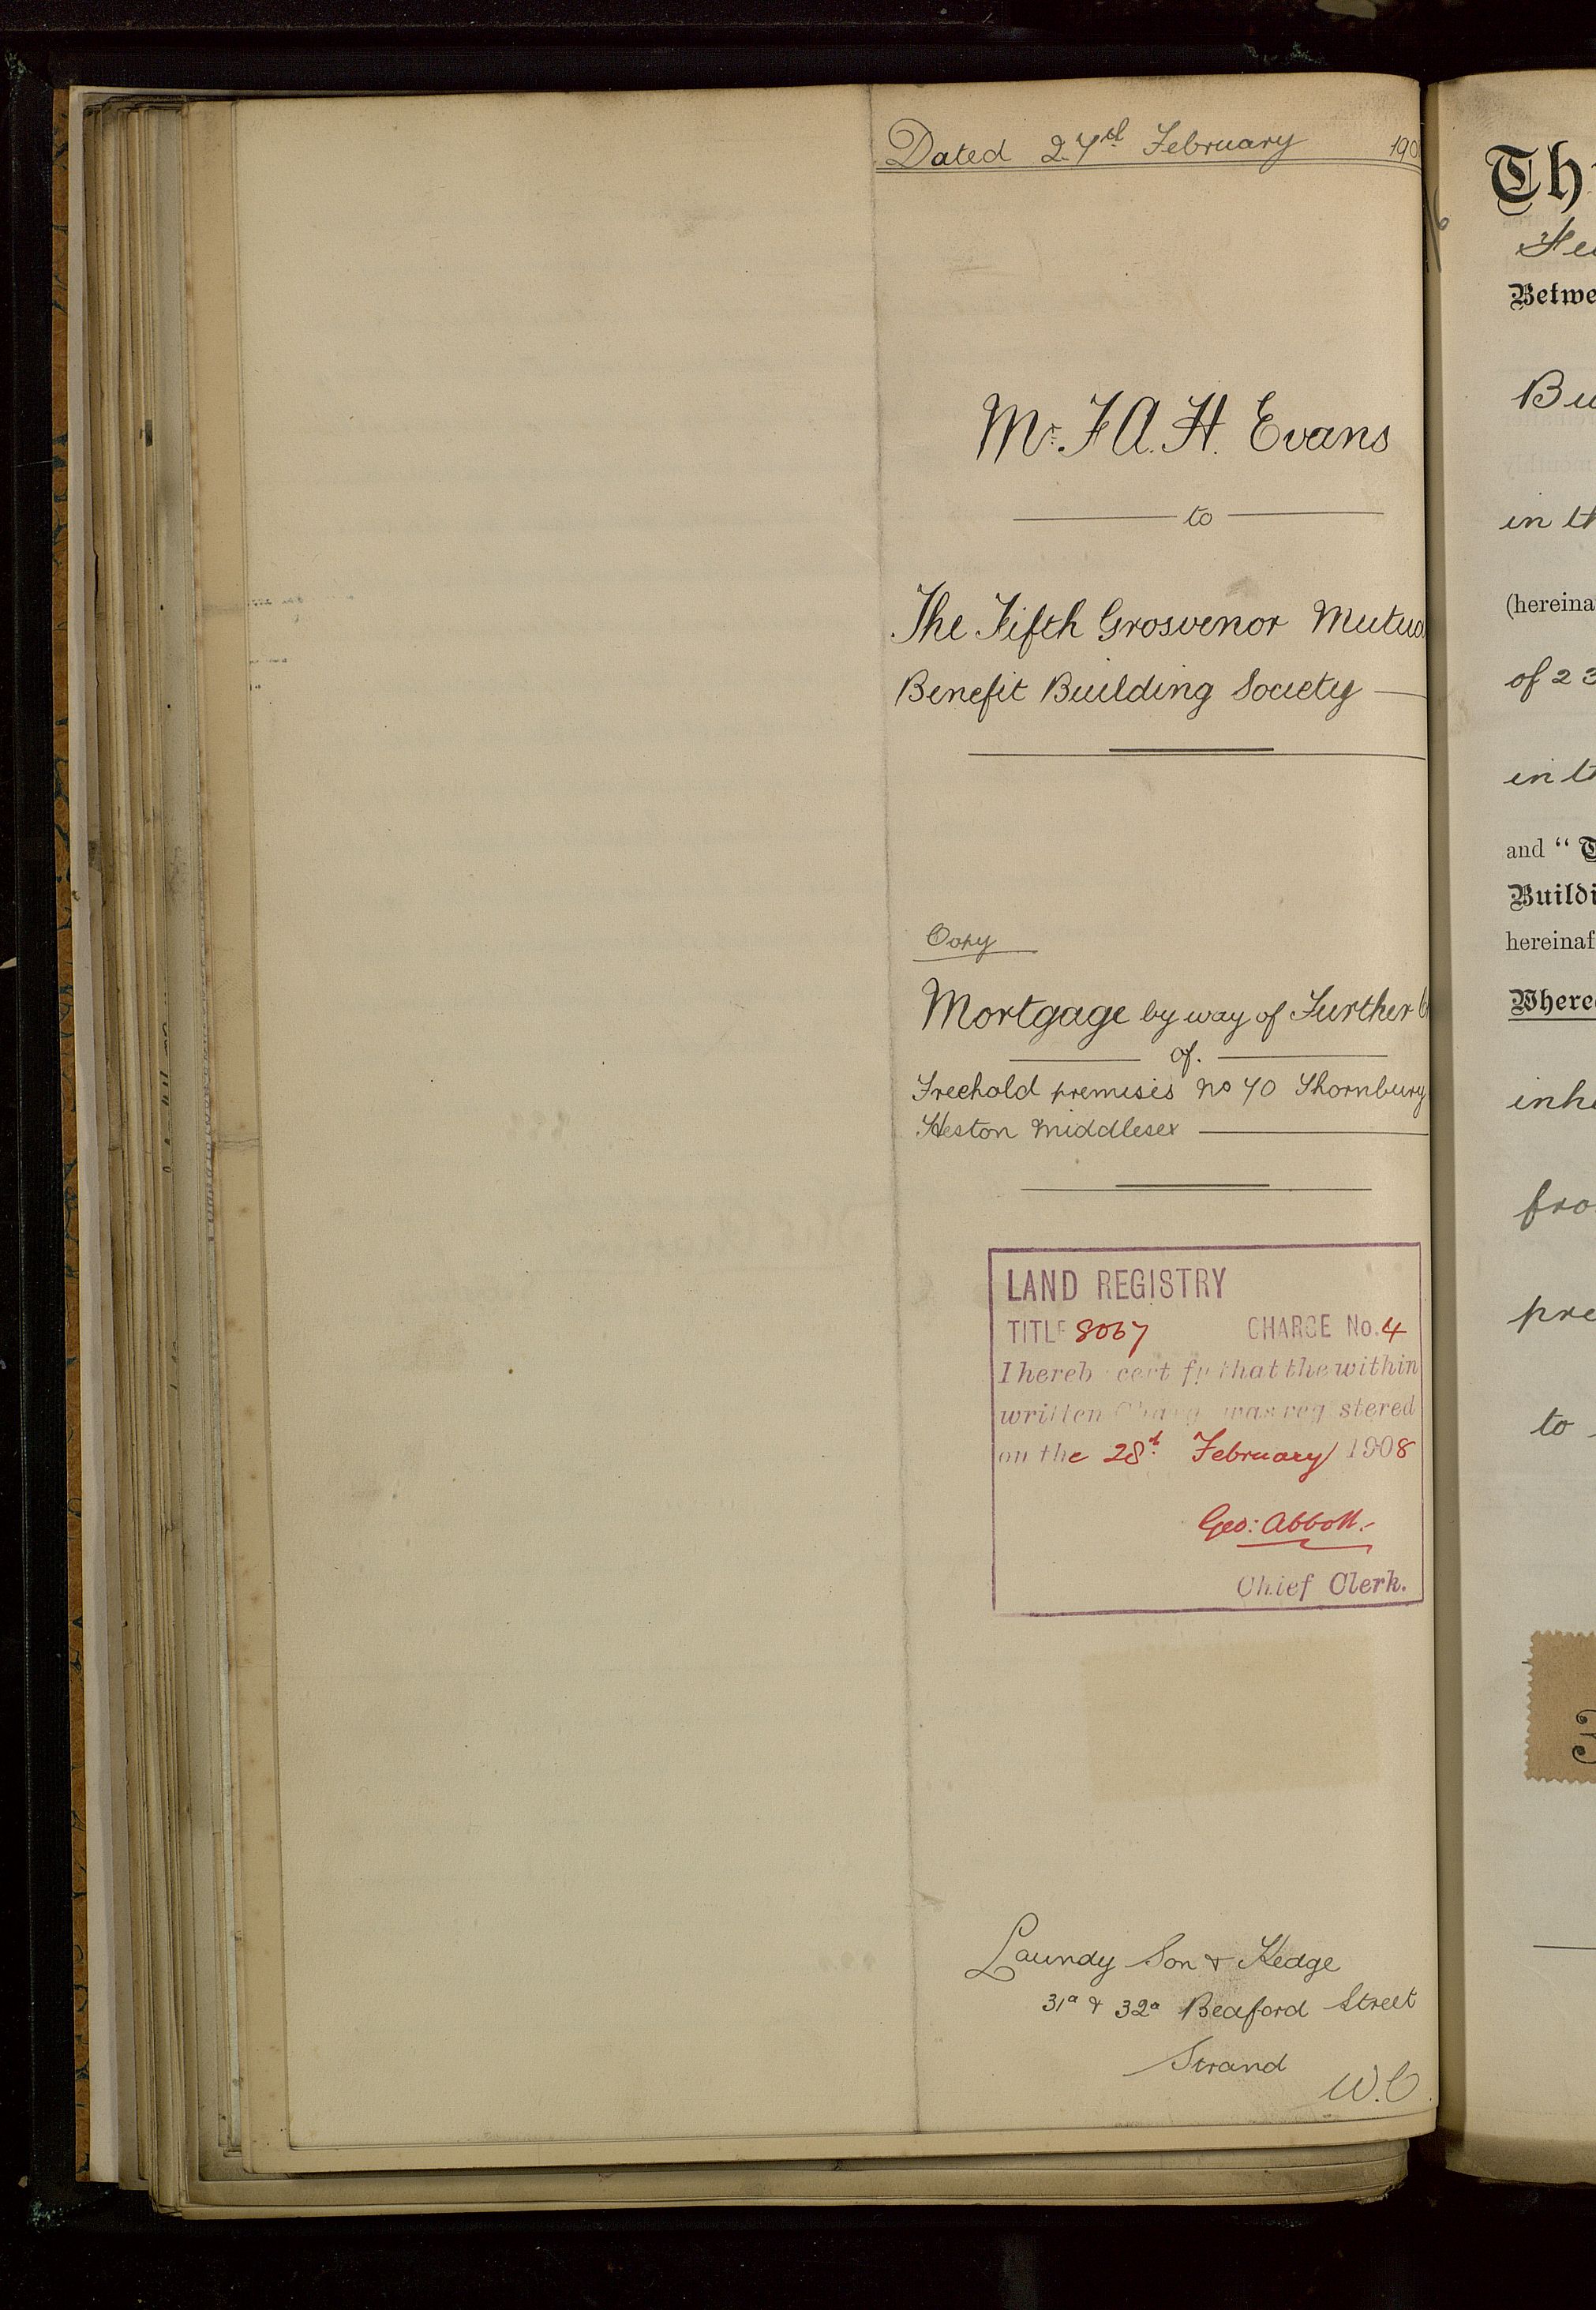 Dated 27th February 190
Mr. F. A. H. Evans
to
The Fifth Grosvenor Mutua
Benefit Building Society
Copy
Mortgage by way of Further C
of
Freehold premises No 70 Thornbury
Heston Middlesex
LAND REGISTRY
TITLE 8067 CHARGE No. 4
I hereby certify that the within
written Charge was registered
on the 28th February 1908
Geo: Abbott.
Chief Clerk.
Laundy Son & Kedge
31a & 32a Bedford Street
Strand
W.C
Th
Fe
Betwe
Bu
in th
(hereina
of 23
in th
and "T
Buildi
hereinaf
Where
inh
fro
pre
to